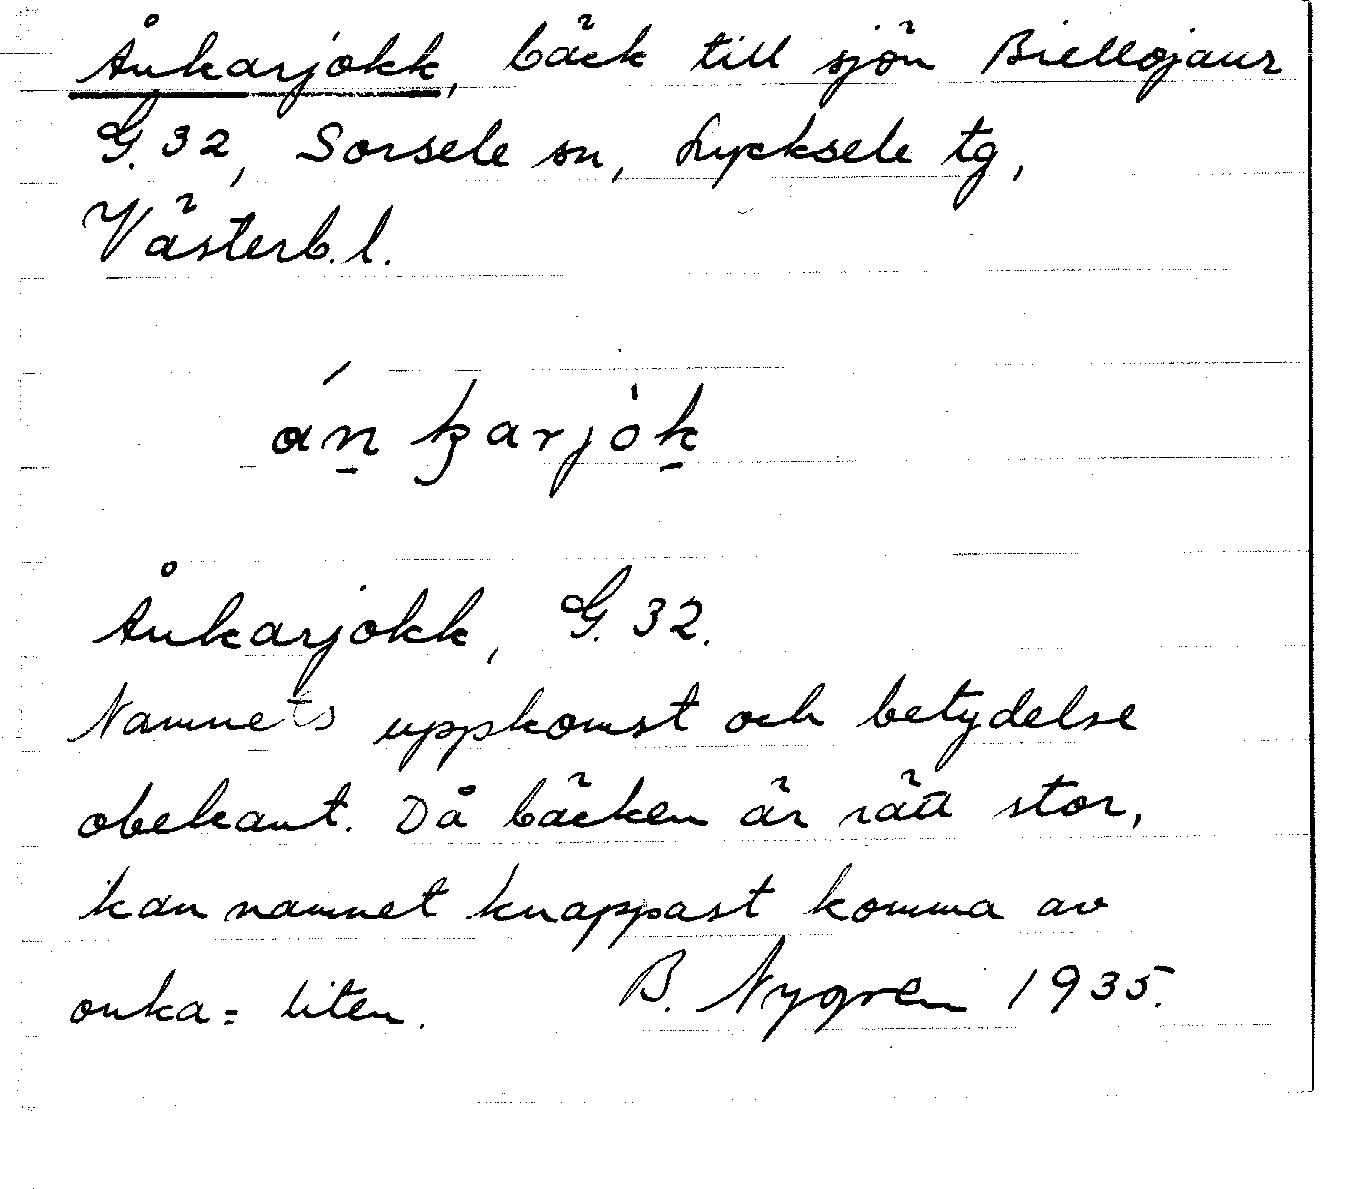 Ånkarjokk, bäck till sjön Biellojaur
G. 32, Sorsele sn, Lycksele tg,
Västerb. l.
án̲ karjòk̲
Ånkarjokk, G. 32.
Namnets uppkomst och betydelse
obekant. Då bäcken är rätt stor,
kan namnet knappast komma av
onka = liten. B. Nygren 1935.